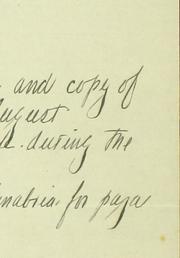 and copy of
August
. during the
nabria, for paja